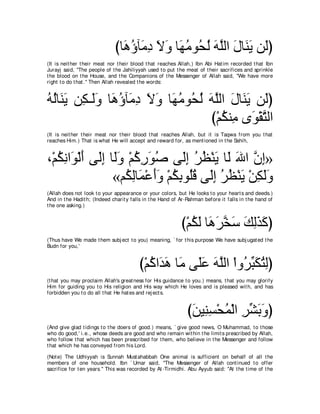 (لَن يَنَالَ اللَّهَ لُحُومُهَا وَلاَ دِمَآؤُهَا)
(It is neither their meat nor their blood that reaches Allah,) Ibn Abi Hatim recorded that Ibn
Jurayj said, "The people of the Jahiliyyah used to put the meat of their sacrifices and sprinkle
the blood on the House, and the Companions of the Messenger of Allah said, "We have more
right to do that." Then Allah revealed the words:
(لَن يَنَالَ اللَّهَ لُحُومُهَا وَلاَ دِمَآؤُهَا وَلَـكِن يَنَالُهُ
التَّقْوَى مِنكُمْ)
(It is neither their meat nor their blood that reaches Allah, but it is Taqwa from you that
reaches Him.) That is what He will accept and reward for, as mentioned in the Sahih,
«إِنَّ اللهَ لَا يَنْظُرُ إِلَى صُوَرِكُمْ وَلَا إِلَى أَلْوَانِكُمْ،
وَلَكِنْ يَنْظُرُ إِلَى قُلُوبِكُمْ وَأَعْمَالِكُمْ»
(Allah does not look to your appearance or your colors, but He looks to your hearts and deeds.)
And in the Hadith; (Indeed charity falls in the Hand of Ar-Rahman before it falls in the hand of
the one asking.)
(كَذلِكَ سَخَّرَهَا لَكُمْ)
(Thus have We made them subject to you) meaning, `for this purpose We have subjugated the
Budn for you,'
(لِتُكَبِّرُواْ اللَّهَ عَلَى مَا هَدَاكُمْ)
(that you may proclaim Allah's greatness for His guidance to you.) means, that you may glorify
Him for guiding you to His religion and His way which He loves and is pleased with, and has
forbidden you to do all that He hates and rejects.
(وَبَشِّرِ الْمُحْسِنِينَ)
(And give glad tidings to the doers of good) means, `give good news, O Muhammad, to those
who do good,' i.e., whose deeds are good and who remain within the limits prescribed by Allah,
who follow that which has been prescribed for them, who believe in the Messenger and follow
that which he has conveyed from his Lord.
(Note) The Udhiyyah is Sunnah Mustahabbah One animal is sufficient on behalf of all the
members of one household. Ibn `Umar said, "The Messenger of Allah continued to offer
sacrifice for ten years." This was recorded by At-Tirmidhi. Abu Ayyub said: "At the time of the